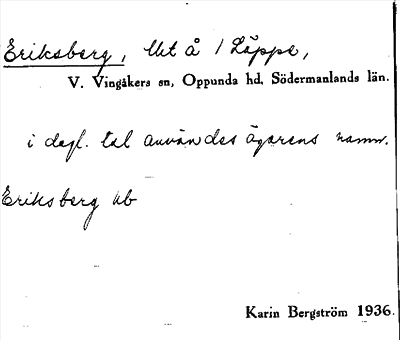 Eriksberg, lht å 1 Läppe,
V. Vingåkers sn, Oppunda hd, Södermanlands län.
i dagl. tal användes ägarens namn.
Eriksberg ub
Karin Bergström 1936.